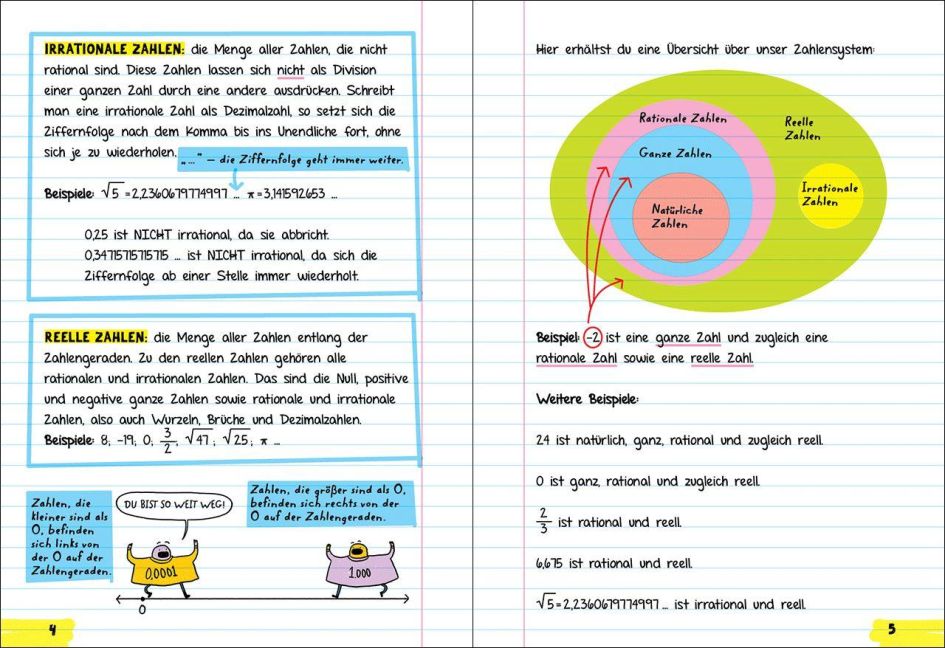 IRRATIONALE ZAHLEN: die Menge aller Zahlen, die nicht
rational sind. Diese Zahlen lassen sich nicht als Division
einer ganzen Zahl durch eine andere ausdrücken. Schreibt
man eine irrationale Zahl als Dezimalzahl, so setzt sich die
Ziffernfolge nach dem Komma bis ins Unendliche fort, ohne
sich je zu wiederholen.
„...“ – die Ziffernfolge geht immer weiter.
Beispiele: √5 = 2,2360679774997 ... π = 3,141592653 ...
0,25 ist NICHT irrational, da sie abbricht.
0,34715715715715 ... ist NICHT irrational, da sich die
Ziffernfolge ab einer Stelle immer wiederholt.
REELLE ZAHLEN: die Menge aller Zahlen entlang der
Zahlengeraden. Zu den reellen Zahlen gehören alle
rationalen und irrationalen Zahlen. Das sind die Null, positive
und negative ganze Zahlen sowie rationale und irrationale
Zahlen, also auch Wurzeln, Brüche und Dezimalzahlen.
Beispiele: 8; –19; 0; 3/2; √47; √25; π ...
Zahlen, die
kleiner sind als
0, befinden
sich links von
der 0 auf der
Zahlengeraden.
DU BIST SO WEIT WEG!
Zahlen, die größer sind als 0,
befinden sich rechts von der
0 auf der Zahlengeraden.
0,0001
1.000
0
4
Hier erhältst du eine Übersicht über unser Zahlensystem:
Rationale Zahlen
Ganze Zahlen
Natürliche
Zahlen
Reelle
Zahlen
Irrationale
Zahlen
Beispiel: –2 ist eine ganze Zahl und zugleich eine
rationale Zahl sowie eine reelle Zahl.
Weitere Beispiele:
24 ist natürlich, ganz, rational und zugleich reell.
0 ist ganz, rational und zugleich reell.
2/3 ist rational und reell.
6,675 ist rational und reell.
√5 = 2,2360679774997 ... ist irrational und reell.
5